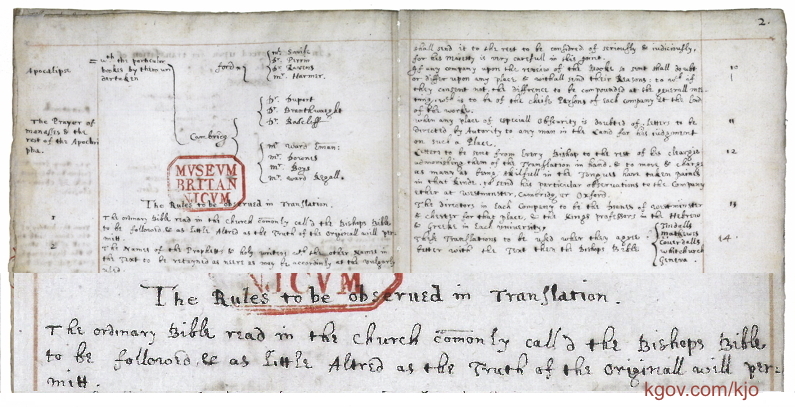 2.
Apocalips
wth the perticular
bookes by them un
dertaken
The Prayer of
Manasses & the
rest of the Apocri
pha.
Dr. Perrin
Dr. Ravens
mr. Harmer.
Dr. Duport
Dr. Radcliff
Cambridg
mr. Ward Eman:
mr. Downes
mr. Boys
mr. Ward Regall.
MVSEVM
BRITAN
NICVM
The Rules to be observed in Translation.
1
The ordinary Bible read in the Church comonly call'd the Bishops Bible
to be followed, & as little Altred as the Truth of the Originall will per
mitt.
The Names of the Prophets & holy writers wth the other Names in
the Text to be retained as neer as may be accordingly as the vulgarly
used.
shall send it to the rest to be considred of seriously & judiciously,
for his Majesty is very carefull in this point.
10
If any company upon the review of the Booke so sent shall doubt
or differ upon any place &
they consent not, the difference to be compounded at the generall mee
ting, wch is to be of the chiefe Persons of each company at the End
of the worke.
11
when any place of especiall Obscurity is doubted of, Letters to be
directed by Autority to any man in the Land for his judgment
on such a Place.
12
Letters to be sent from Every Bishop to the rest of his Clergie
admonishing them of this Translation in hand, & to move & charge
as many as being skilfull in the Tongues have taken paines
in that kinde, to send his particular observations to the Company
either at westminster, Cambridg or Oxford.
The directors in Each Company to be the Deanes of westminster
& chester for that place, & the Kings professors in the Hebrew
& Greeke in Each university.
14.
These Translations to be used when they agree
better with the Text then the Bishops Bible
Tindalls
Mathewes
Coverdalls
whitchurch
Geneva
NICVM
The Rules to be observed in Translation.
The ordinary Bible read in the Church comonly call'd the Bishops Bible,
to be followed, & as little Altred as the Truth of the Originall will per:
mitt.
kgov.com/kjo